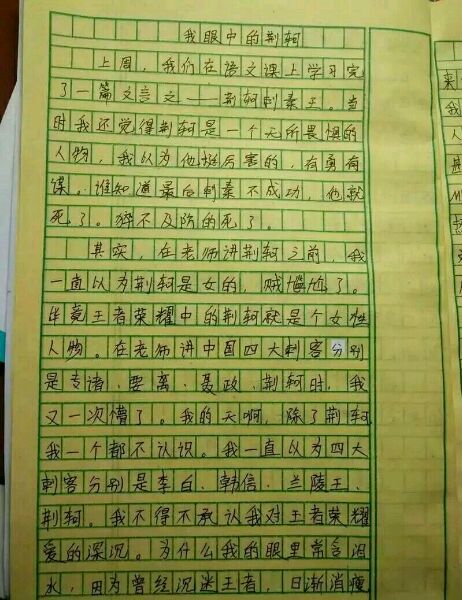 我眼中的荆轲
上周，我们在语文课上学习完
了一篇文言文——荆轲刺秦王。当
时我还觉得荆轲是一个无所畏惧的
人物，我以为他挺厉害的，有勇有
谋。谁知道最后刺秦不成功，他就
死了。猝不及防的死了。
其实，在老师讲荆轲之前，我
一直以为荆轲是女的，贼尴尬了。
毕竟王者荣耀中的荆轲就是个女性
人物。在老师讲中国四大刺客分别
是专诸、要离、聂政、荆轲时，我
又一次懵了。我的天啊，除了荆轲，
我一个都不认识。我一直以为四大
刺客分别是李白、韩信、兰陵王、
荆轲。我不得不承认我对王者荣耀
爱的深沉。为什么我的眼里常含泪
水，因为曾经沉迷王者，日渐消瘦
来
我
人
甚
M